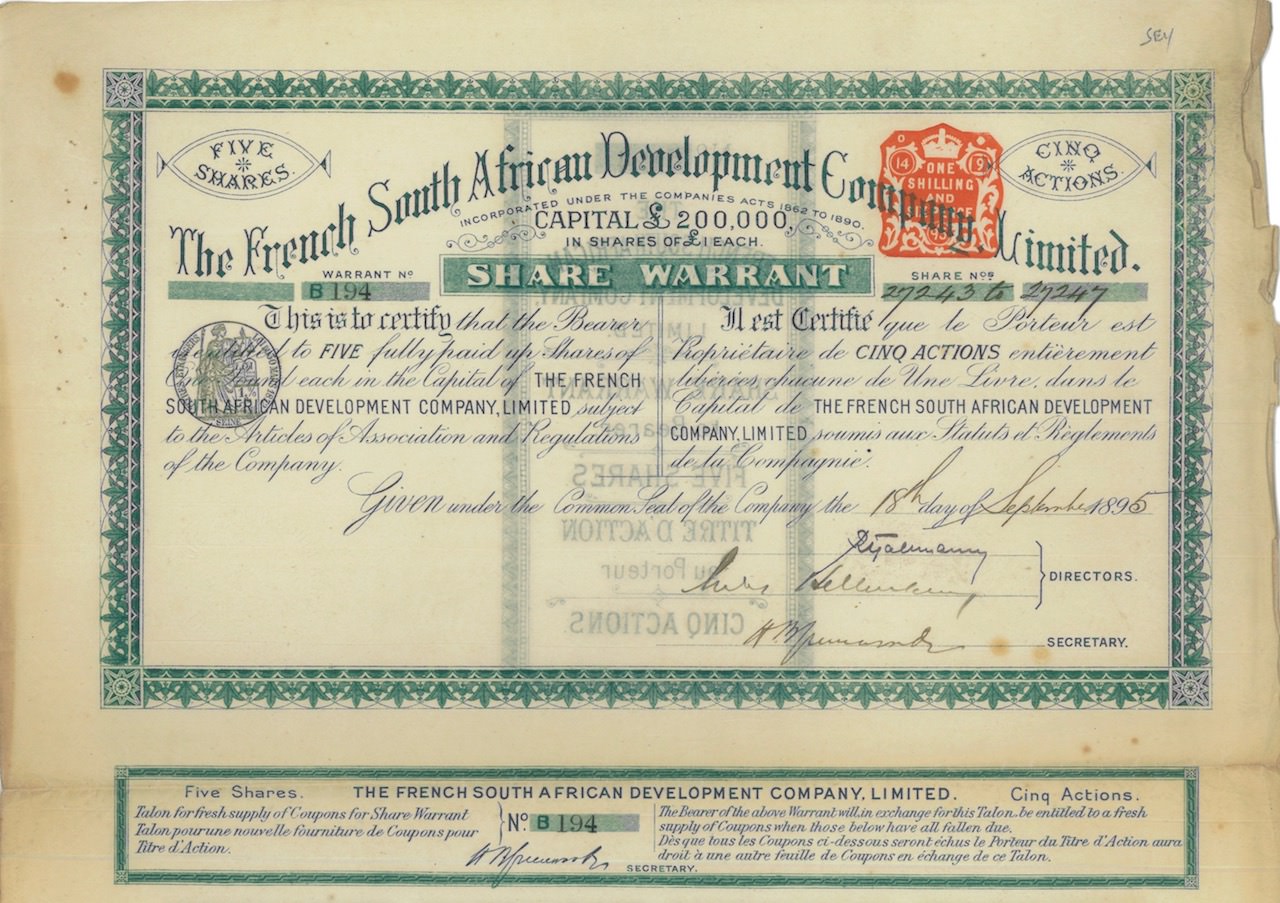 SEY
FIVE
SHARES.
CINQ
ACTIONS.
The French South African Development Company, Limited.
INCORPORATED UNDER THE COMPANIES ACTS 1862 TO 1890.
CAPITAL £ 200,000,
IN SHARES OF £1 EACH.
14
9
ONE
SHILLING
AND
SHARE WARRANT
WARRANT Nº
B 194
SHARE Nºs
27243 to 27247
This is to certify that the Bearer
is entitled to FIVE fully paid up Shares of
One Pound each in the Capital of THE FRENCH
SOUTH AFRICAN DEVELOPMENT COMPANY, LIMITED subject
to the Articles of Association and Regulations
of the Company.
SEINE
Il est Certifié que le Porteur est
Propriétaire de CINQ ACTIONS entièrement
libérées chacune de Une Livre, dans le
Capital de THE FRENCH SOUTH AFRICAN DEVELOPMENT
COMPANY, LIMITED soumis aux Statuts et Règlements
de la Compagnie.
Given under the Common Seal of the Company the 18th day of September 1895
DIRECTORS.
SECRETARY.
TITRE D'ACTION
au Porteur
CINQ ACTIONS.
FIVE SHARES.
Five Shares. THE FRENCH SOUTH AFRICAN DEVELOPMENT COMPANY, LIMITED. Cinq Actions.
Talon for fresh supply of Coupons for Share Warrant
Talon pour une nouvelle fourniture de Coupons pour
Titre d'Action.
Nº B 194
SECRETARY.
The Bearer of the above Warrant will, in exchange for this Talon, be entitled to a fresh
supply of Coupons when those below have all fallen due.
Dès que tous les Coupons ci-dessous seront échus le Porteur du Titre d'Action aura
droit à une autre feuille de Coupons en échange de ce Talon.